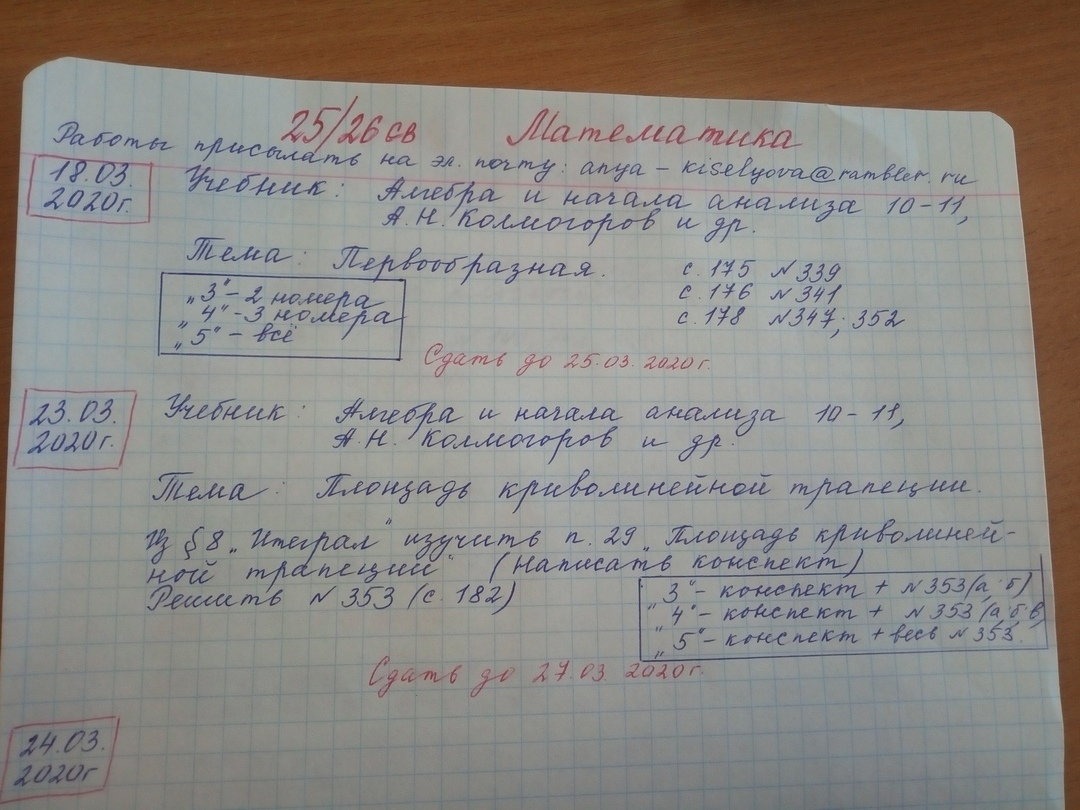 25/26 св Математика
Работы присылать на эл. почту: anya-kiselyova@rambler.ru
18.03. 2020г.
Учебник: Алгебра и начала анализа 10-11,
А.Н. Колмогоров и др.
Тема: Первообразная.
с. 175 №339
с. 176 №341
с. 178 №347; 352
„3" - 2 номера
„4" - 3 номера
„5" - всё
Сдать до 25.03.2020г.
23.03. 2020г.
Учебник: Алгебра и начала анализа 10-11,
А.Н. Колмогоров и др.
Тема: Площадь криволинейной трапеции.
Из §8 „Интеграл" изучить п. 29 „Площадь криволиней-
ной трапеции" (Написать конспект)
Решить №353 (с. 182)
„3" - конспект + №353(а; б)
„4" - конспект + №353(а; б; в)
„5" - конспект + весь №353.
Сдать до 27.03.2020г.
24.03.
2020г